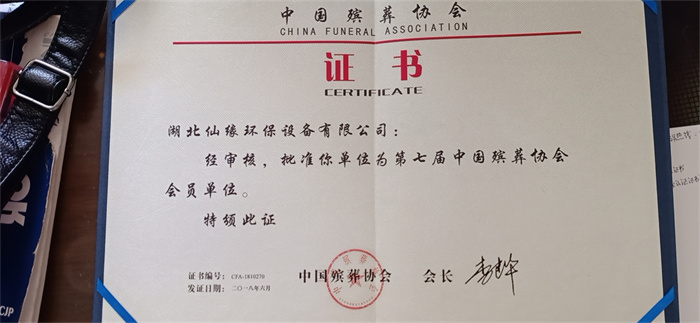 中国殡葬协会
CHINA FUNERAL ASSOCIATION
证书
CERTIFICATE
湖北仙缘环保设备有限公司：
经审核，批准你单位为第七届中国殡葬协会
会员单位。
特颁此证
证书编号：CFA-1810270
发证日期：二〇一八年六月
中国殡葬协会 会长
CJP